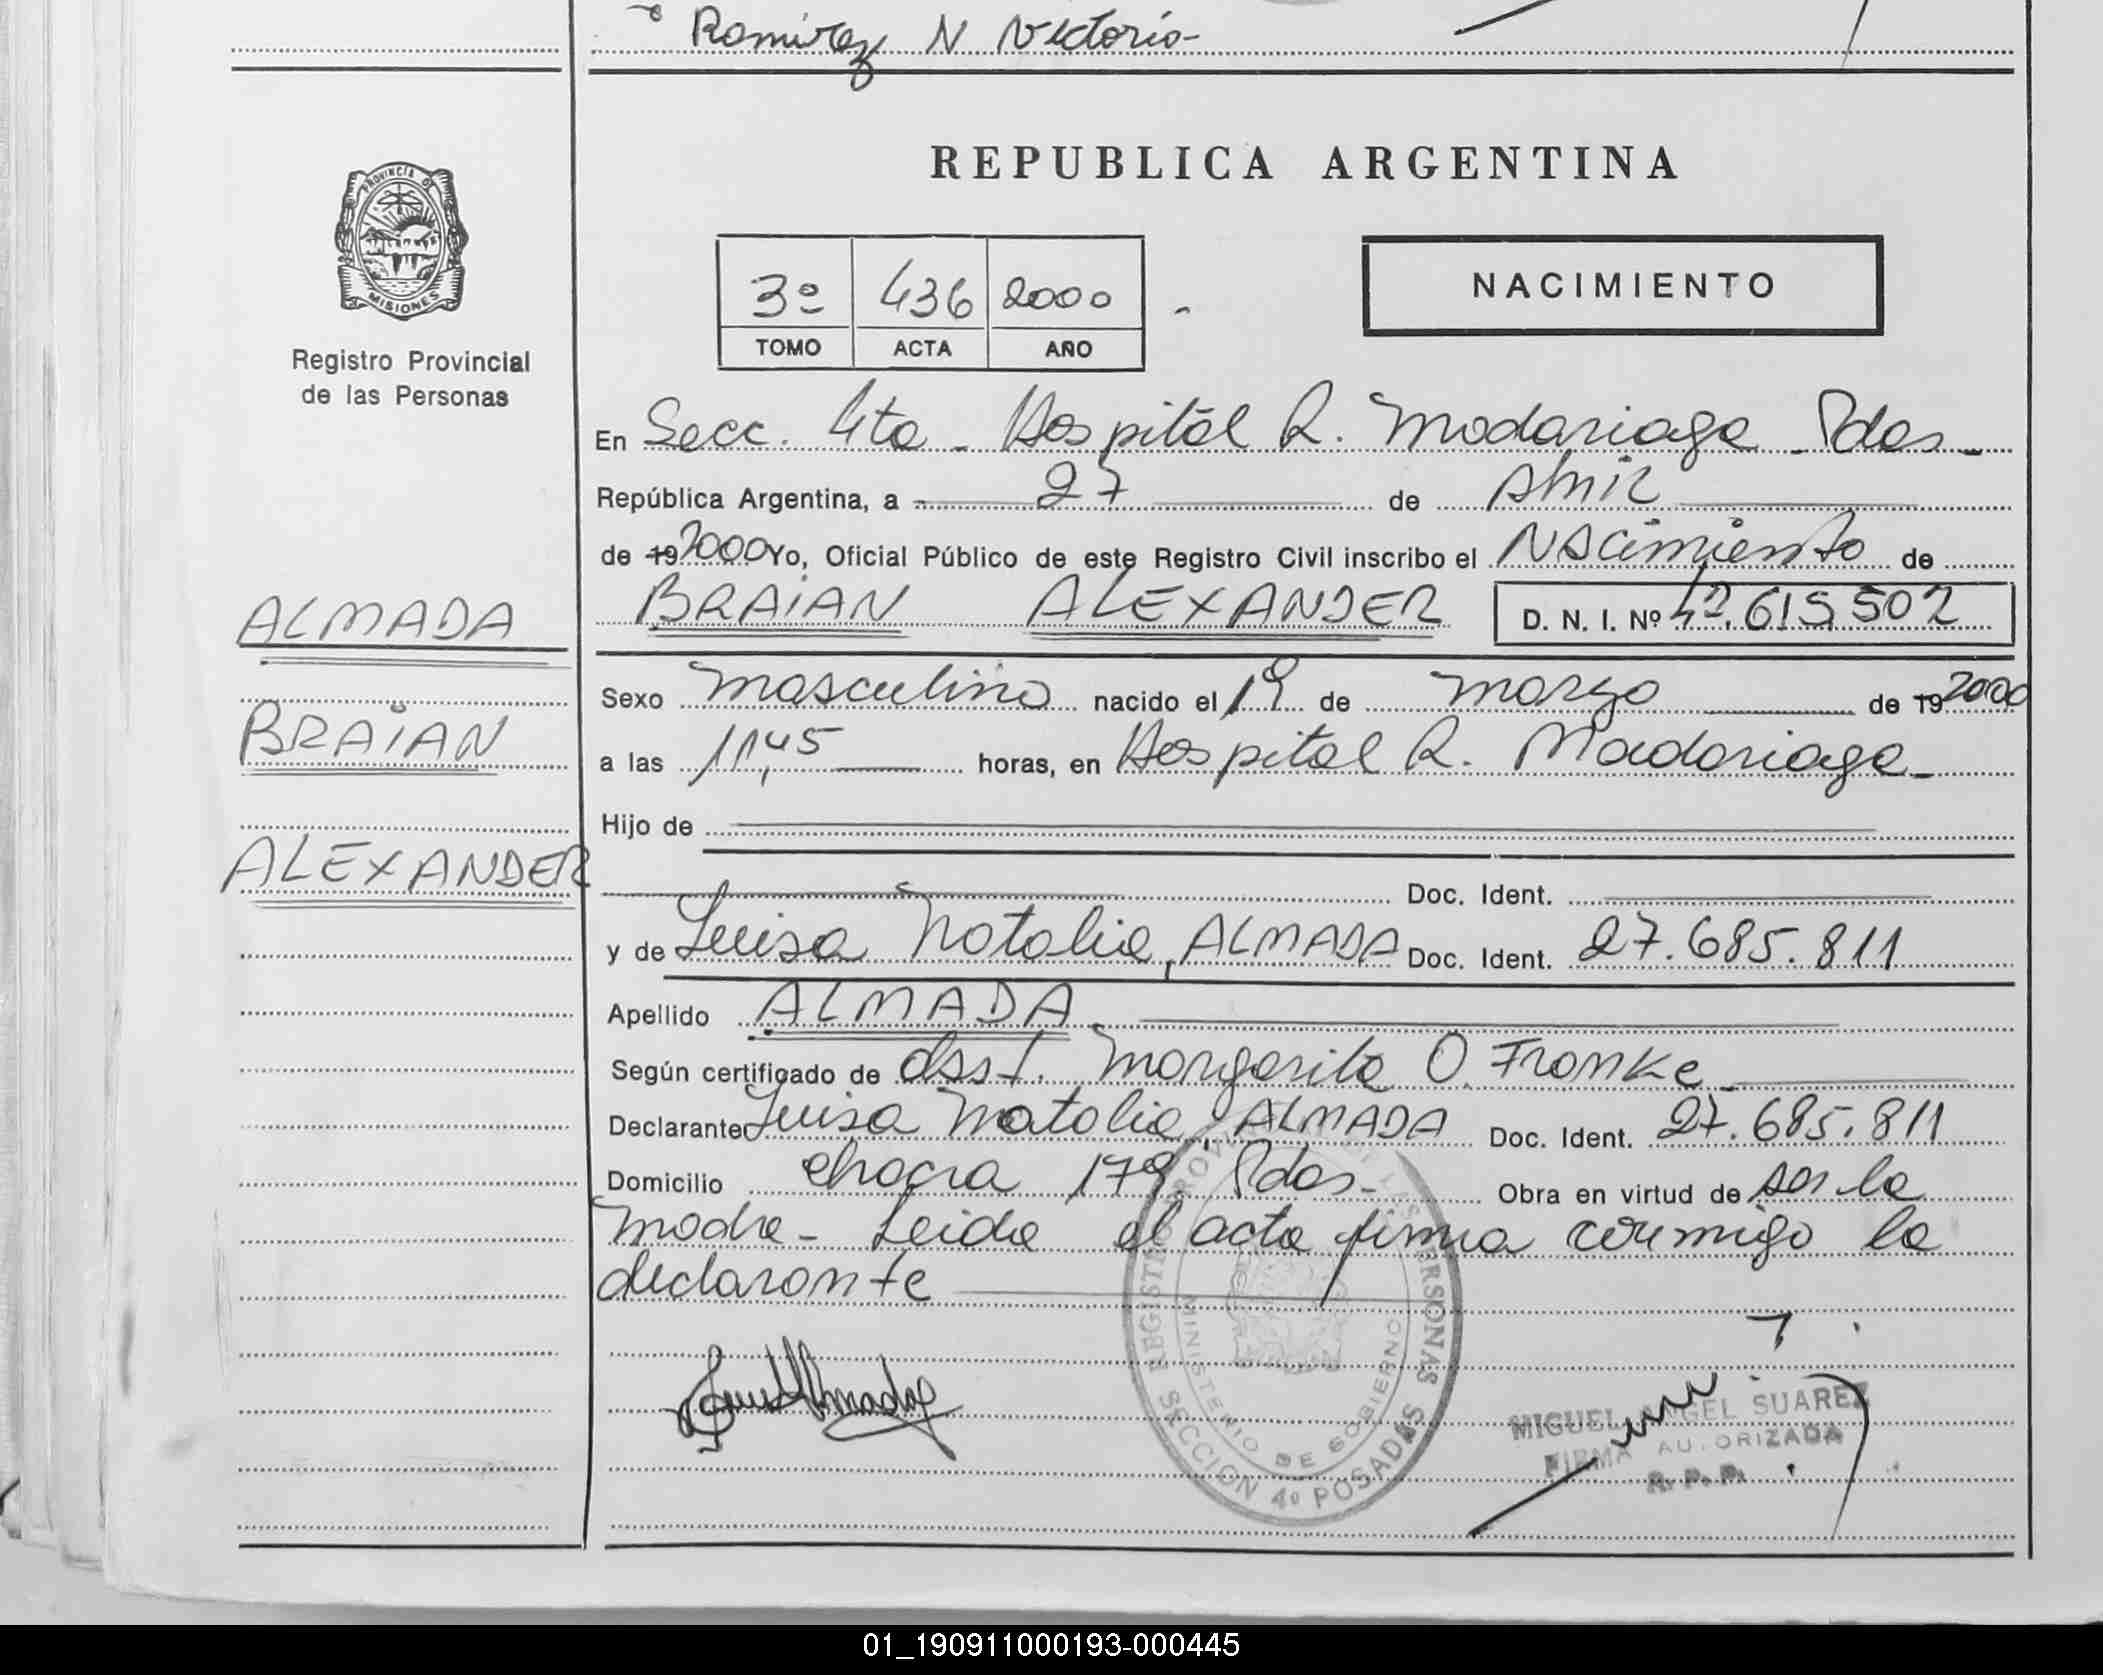 Ramirez N Victoria-
PROVINCIA DE
MISIONES
Registro Provincial
de las Personas
REPUBLICA ARGENTINA
3º 436 2000 -
TOMO ACTA AÑO
NACIMIENTO
En Secc. 4ta - Hospital R. Madariaga - Pdas -
República Argentina, a 27 de Abril
de 19 2000 Yo, Oficial Público de este Registro Civil inscribo el Nacimiento de
BRAIAN ALEXANDER D. N. I. Nº 42.615.502
ALMADA
BRAIAN
ALEXANDER
Sexo masculino nacido el 19 de marzo de 19 2000
a las 11,45 horas, en Hospital R. Madariaga -
Hijo de
Doc. Ident.
y de Luisa Natalia, ALMADA Doc. Ident. 27.685.811
Apellido ALMADA
Según certificado de Obst. Margarita O. Franke -
Declarante Luisa Natalia, ALMADA Doc. Ident. 27.685.811
Domicilio chacra 179, Pdas - Obra en virtud de ser la
madre - Leida el acta firma conmigo la
declarante
REGISTRO PROVINCIAL DE LAS PERSONAS
MINISTERIO DE GOBIERNO
SECCION 4º POSADAS
MIGUEL ANGEL SUAREZ
FIRMA AUTORIZADA
R. P. P.
01_190911000193-000445